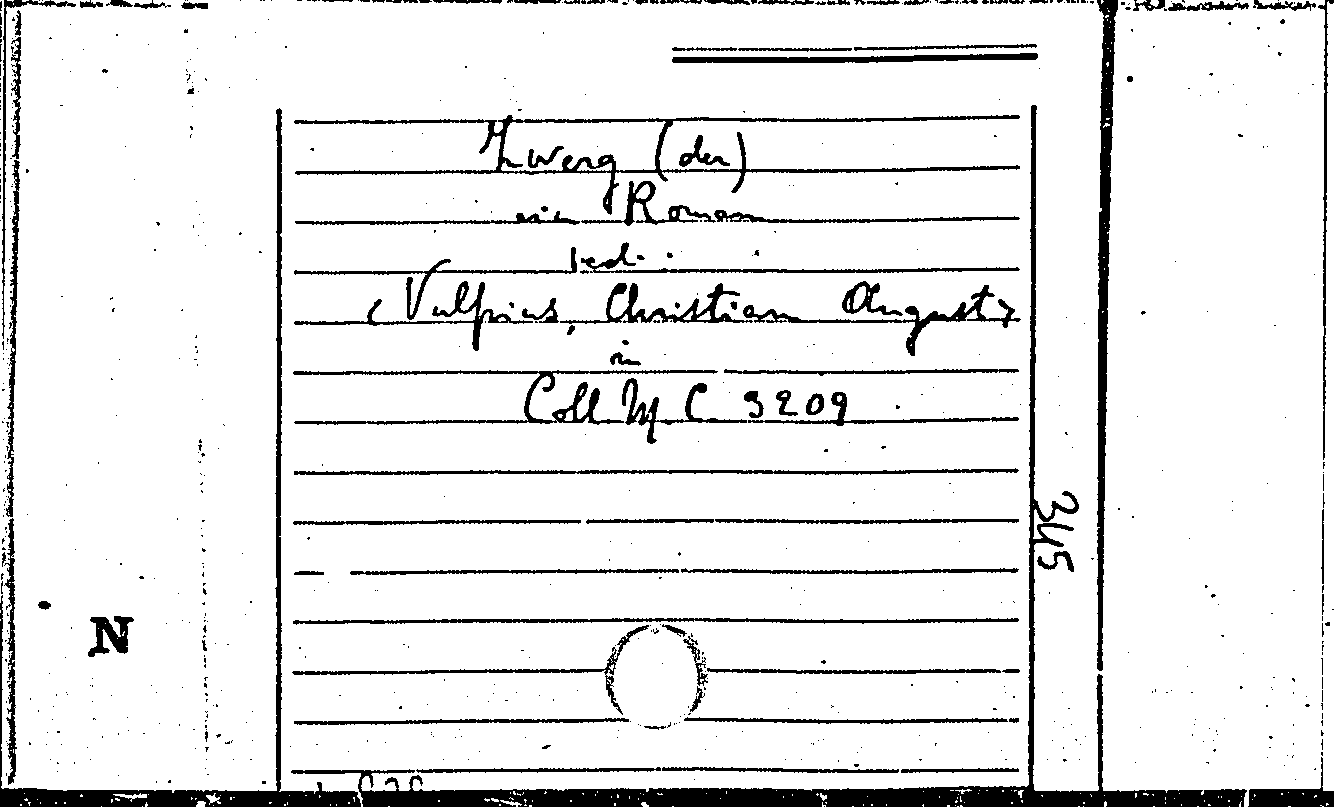 Zwerg (der)
ein Roman
ied.
(Vulpius, Christian August)
in
Coll M C 3209
345
N